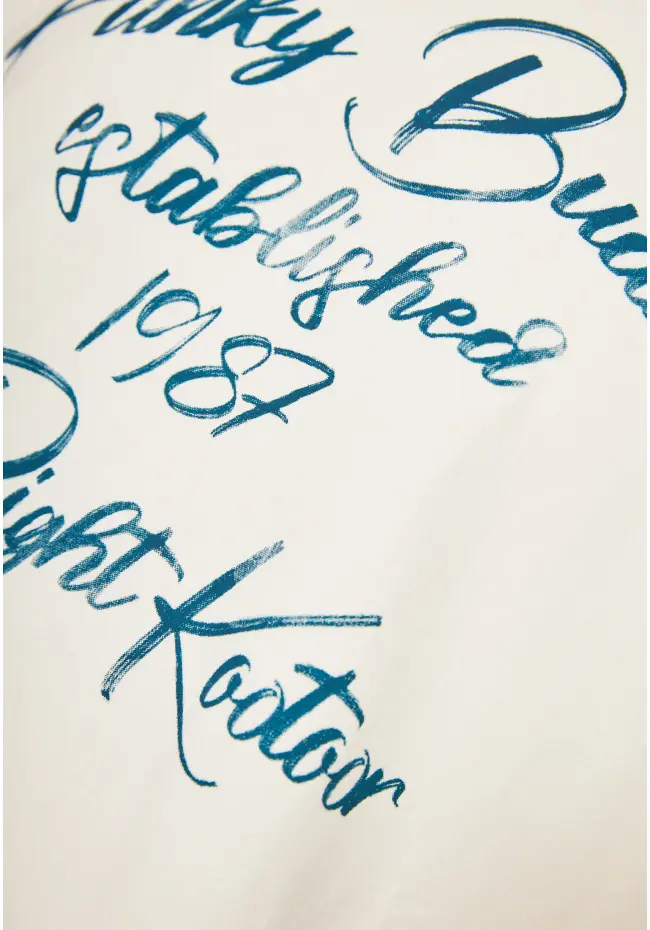 Funky Bud
established
1987
ight Kootoor